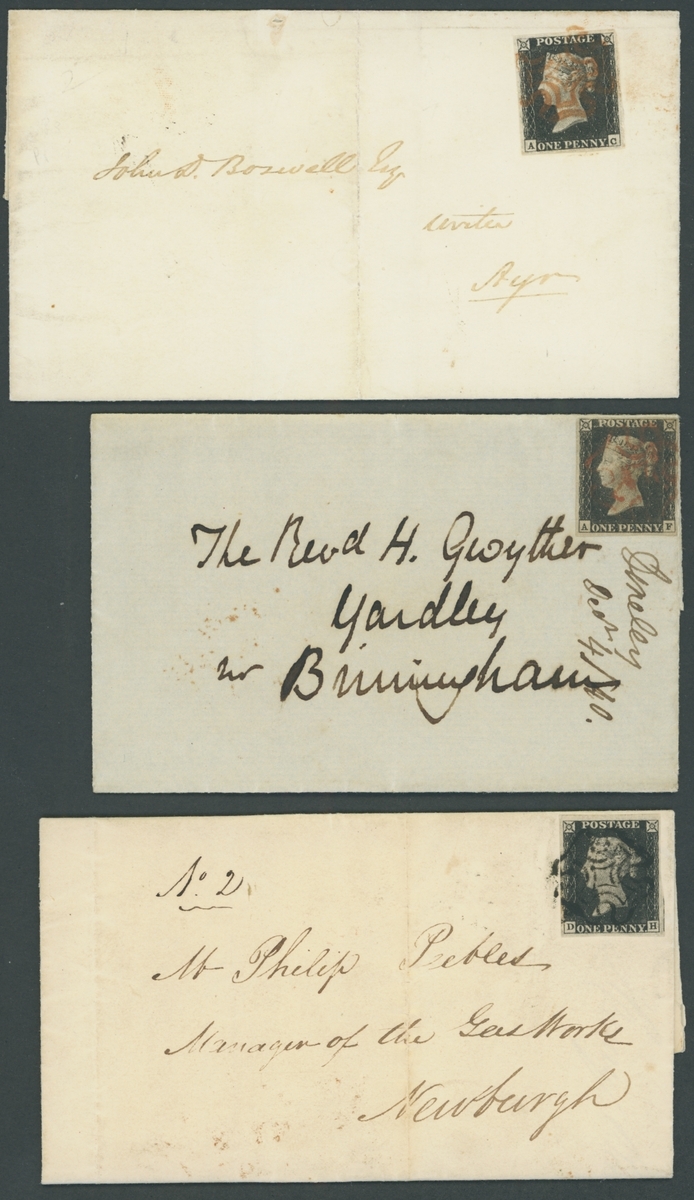 POSTAGE
A ONE PENNY C
John D. Boswell Esq
Writer
Ayr
POSTAGE
A ONE PENNY F
The Revd H. Gwyther
Yardley
nr Birmingham
Decr 4/40.
POSTAGE
D ONE PENNY H
No. 2
Mr Philip Peebles
Manager of the Gas Works
Newburgh